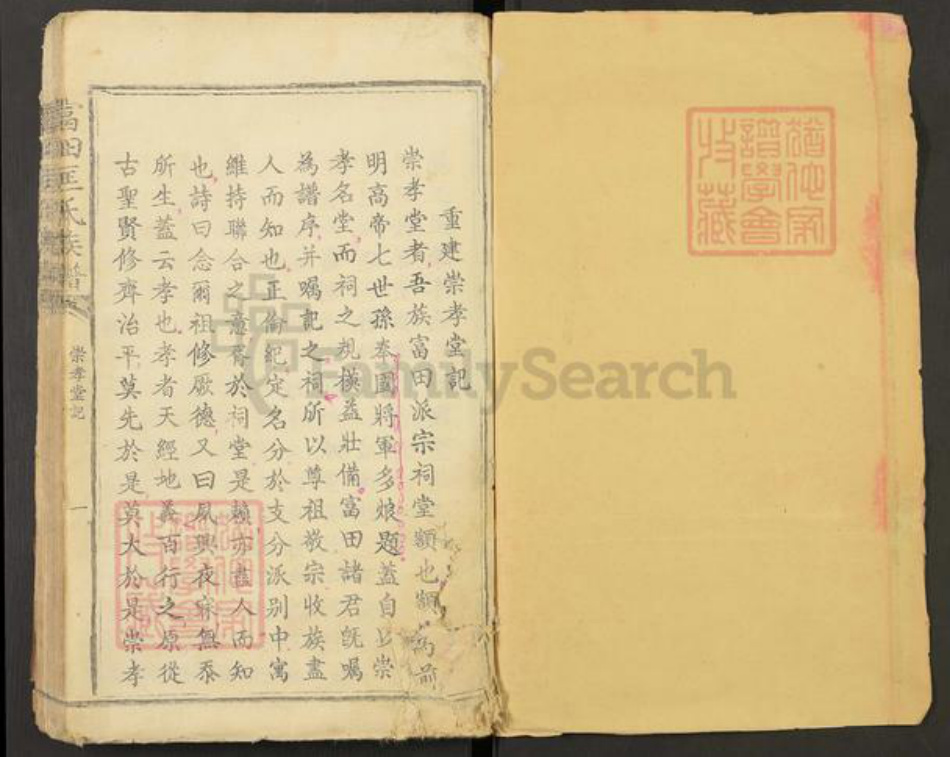 重建崇孝堂記
崇孝堂者吾族富田派宗祠堂額也額為前
明高帝七世孫奉國將軍多煩題蓋自以崇
孝名堂而祠之規模益壯備富田諸君既囑
為譜序并囑記之祠所以尊祖敬宗收族盡
人而知也正倫紀定名分於支分派別中寓
維持聯合之意胥於祠堂是賴亦盡人而知
也詩曰念爾祖修厥德又曰夙興夜寐無忝
所生蓋云孝也孝者天經地義百行之原從
古聖賢修齊治平莫先於是莫大於是崇孝
富田匡氏族譜
崇孝堂記
一
猶他家
譜學會
收藏
FamilySearch